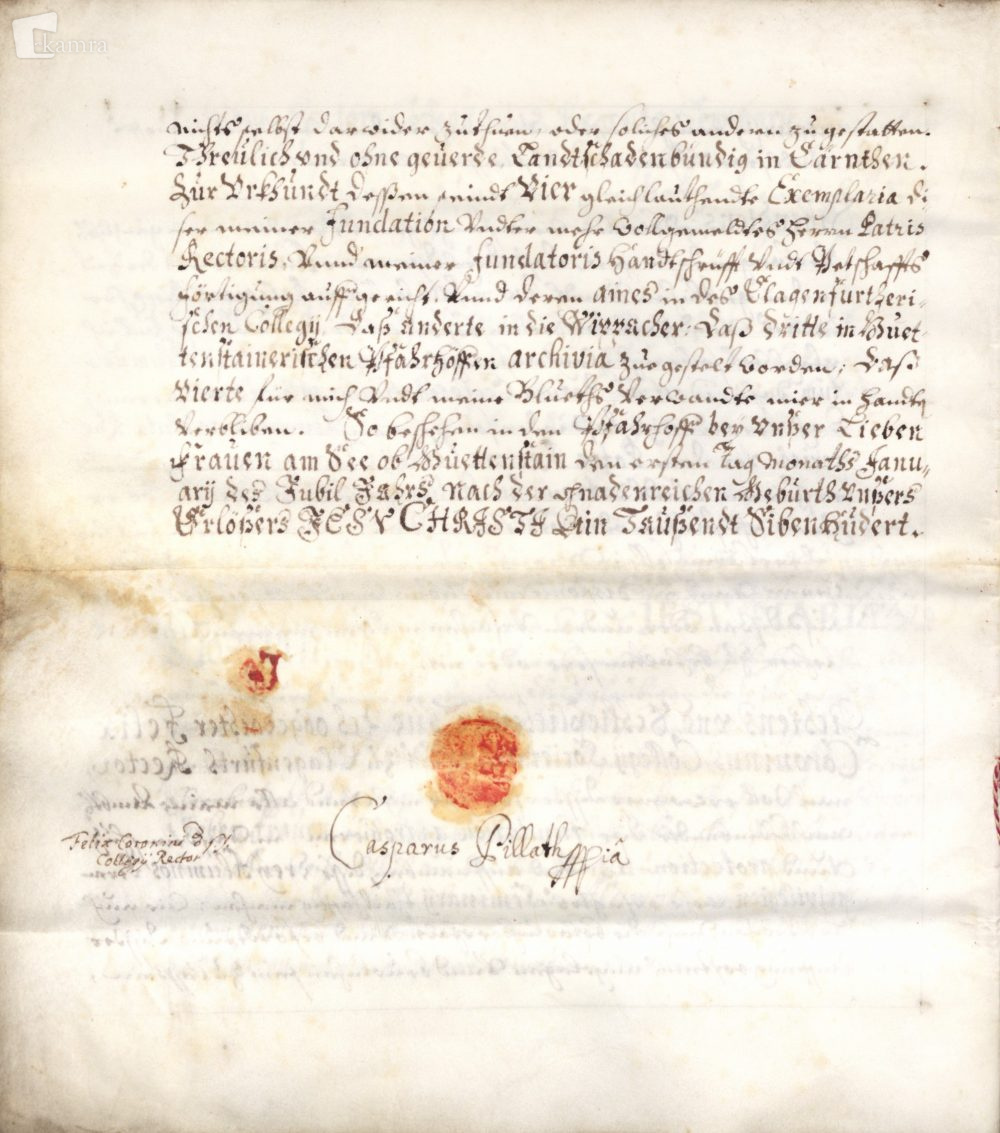 kamra
nichts selbst darwider zuthuen, oder soliches andern zu gestatten.
Threülich vnd ohne geuerde, Landtschadenbündig in Cärnthen.
Zur Vrkhundt dessen seindt Vier gleichlauthendte Exemplaria di
ser meiner fundation Vndter mehr Vollgemeldtes Herrn Patris
Rectoris, Vnnd meiner fundatoris Handtschrüfft Vndt Petschaffts
förtigung auffgericht, Vnnd deren aines in des Clagenfurtheri-
schen Collegij, Daß änderte in die Wippacher, Daß dritte in Guet-
tenstainerischen Pfahrhöffen archivia zuegestelt worden; Daß
Vierte für mich Vndt meine Blueths Verwandte mier in Handten
Verbliben. So beschehen in den Pfahrhoff bey vnßer Lieben
frauen am See ob Guettenstain den ersten Tag Monaths Janu-
arij des Jubil Jahrs, nach der gnadenreichen Geburth vnßers
Erlößers JESV CHRISTI Ain Taußendt Sibenhundert.
Felix Coronini
Collegij Rector
Casparus Pillath